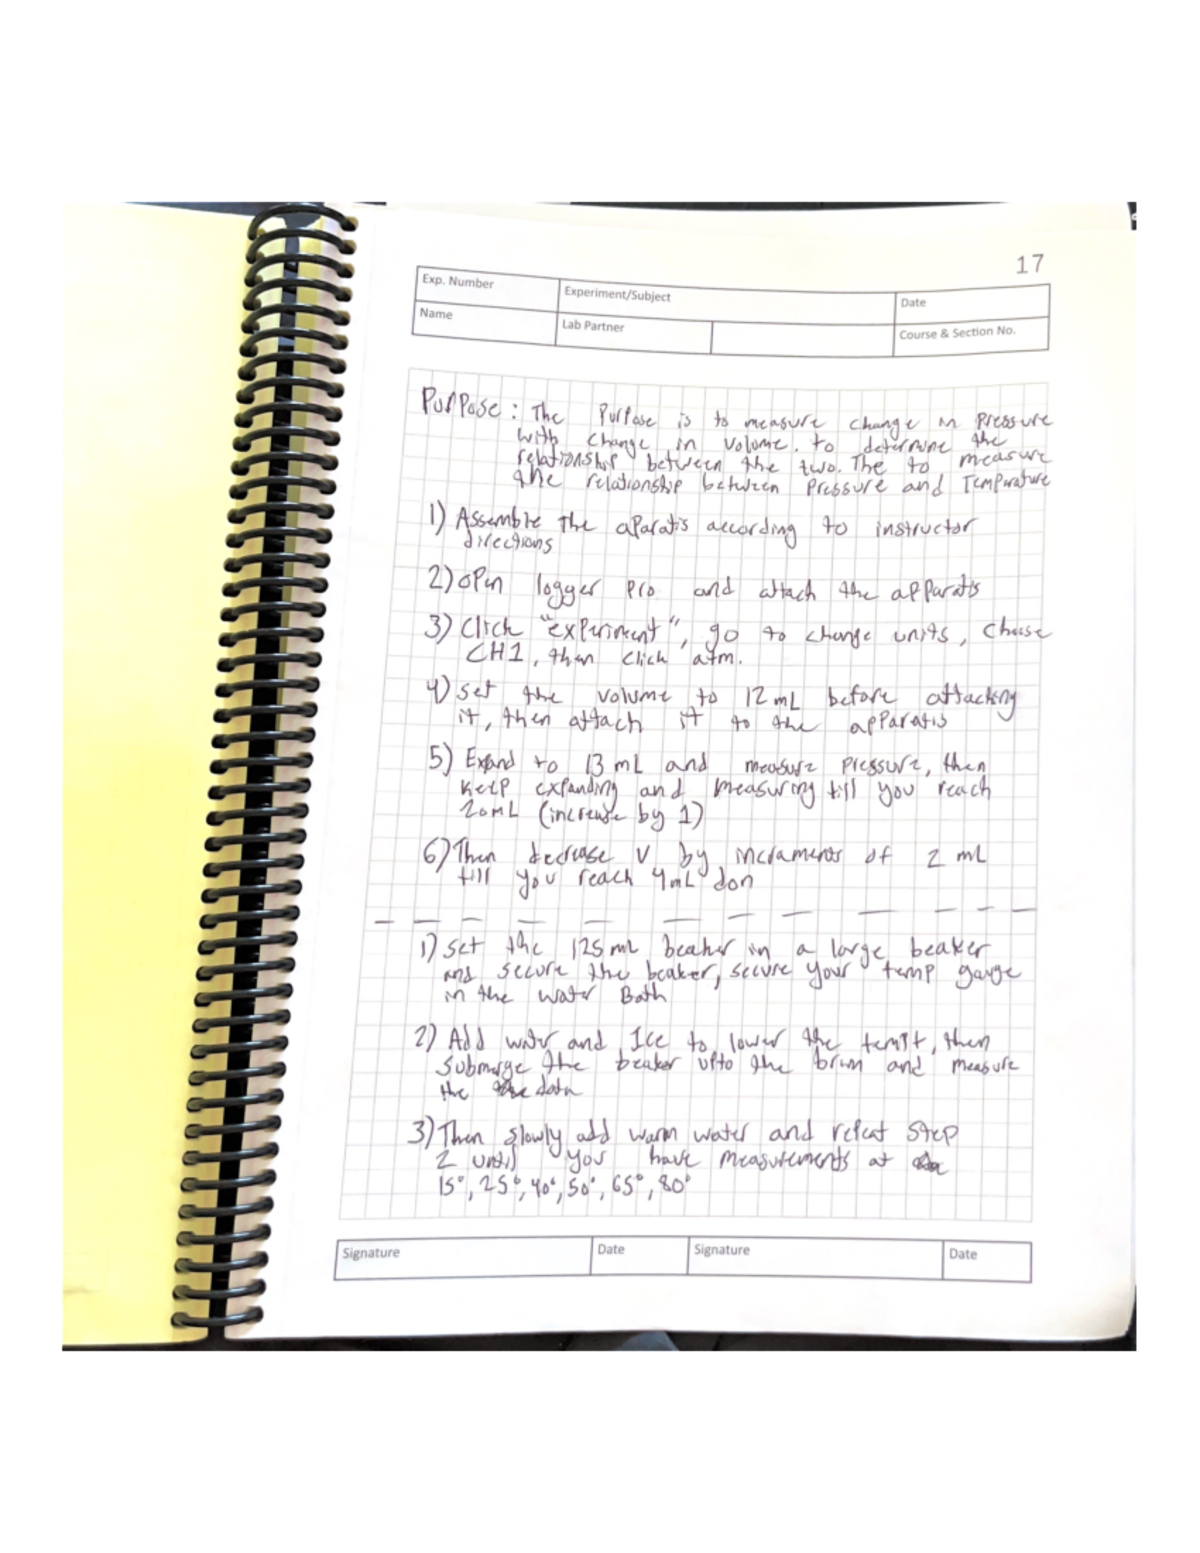 17
Exp. Number
Experiment/Subject
Date
Name
Lab Partner
Course & Section No.
Purpose: The Purpose is to measure change in Pressure
with change in volume. to determine the
relationship between the two. The to measure
the relationship between Pressure and Temperature
1) Assemble the aparatis according to instructor
directions
2) open logger pro and attach the apparatis
3) Click "experiment", go to change units, choose
CH1, then click atm.
4) set the volume to 12 mL before attacking
it, then attach it to the apparatis
5) Expand to 13 mL and measure pressure, then
keep expanding and measuring till you reach
20mL (increase by 1)
6) Then decrease V by incraments of 2 mL
till you reach 4mL don
1) set the 125 mL beaker in a large beaker
and secure the beaker, secure your temp gauge
in the water Bath
2) Add water and Ice to lower the , then
submerge the beaker upto the brim and measure
the data
3) Then slowly add warm water and repeat step
2 until you have measurements at
15°, 25°, 40°, 50°, 65°, 80°
Signature
Date
Signature
Date